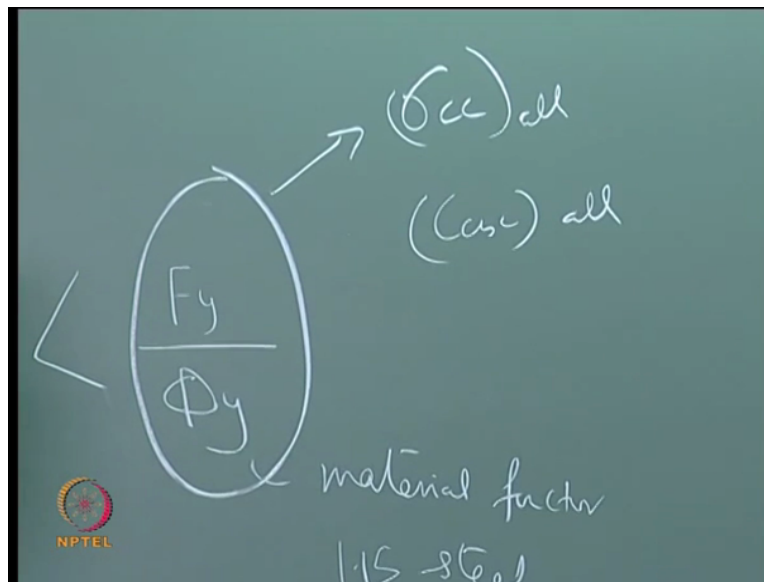 (σcc) all
((asc) all
<
Fy
Φy
material factor
1.15 steel
NPTEL